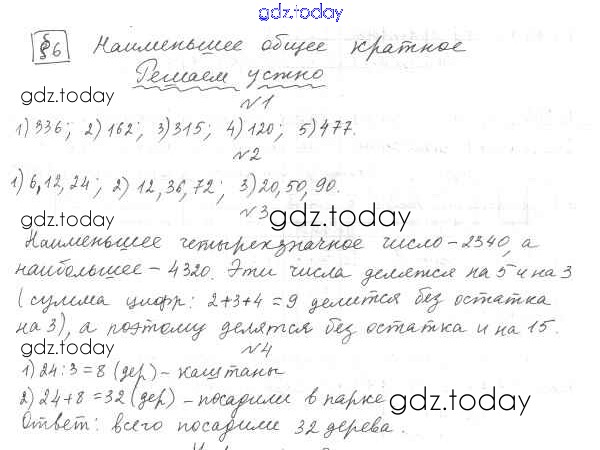 gdz.today
§6 Наименьшее общее кратное
Решаем устно
gdz.today
№1
1) 336; 2) 162; 3) 315; 4) 120; 5) 477.
№2
1) 6, 12, 24; 2) 12, 36, 72; 3) 20, 50, 90.
gdz.today
№3
gdz.today
Наименьшее четырехзначное число - 2340, а
наибольшее - 4320. Эти числа делятся на 5 и на 3
(сумма цифр: 2+3+4=9 делится без остатка
на 3), а поэтому делятся без остатка и на 15.
gdz.today
№4
1) 24:3=8 (дер) - каштаны
2) 24+8=32 (дер) - посадили в парке
gdz.today
Ответ: всего посадили 32 дерева.